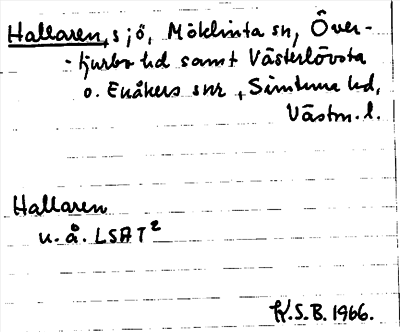 Hallaren, sjö, Möklinta sn, Över-
-tjurbo hd samt Västerlövsta
o. Enåkers snr, Simtuna hd,
Västm. l.
Hallaren
u. å. LSAT²
K.S.B. 1966.